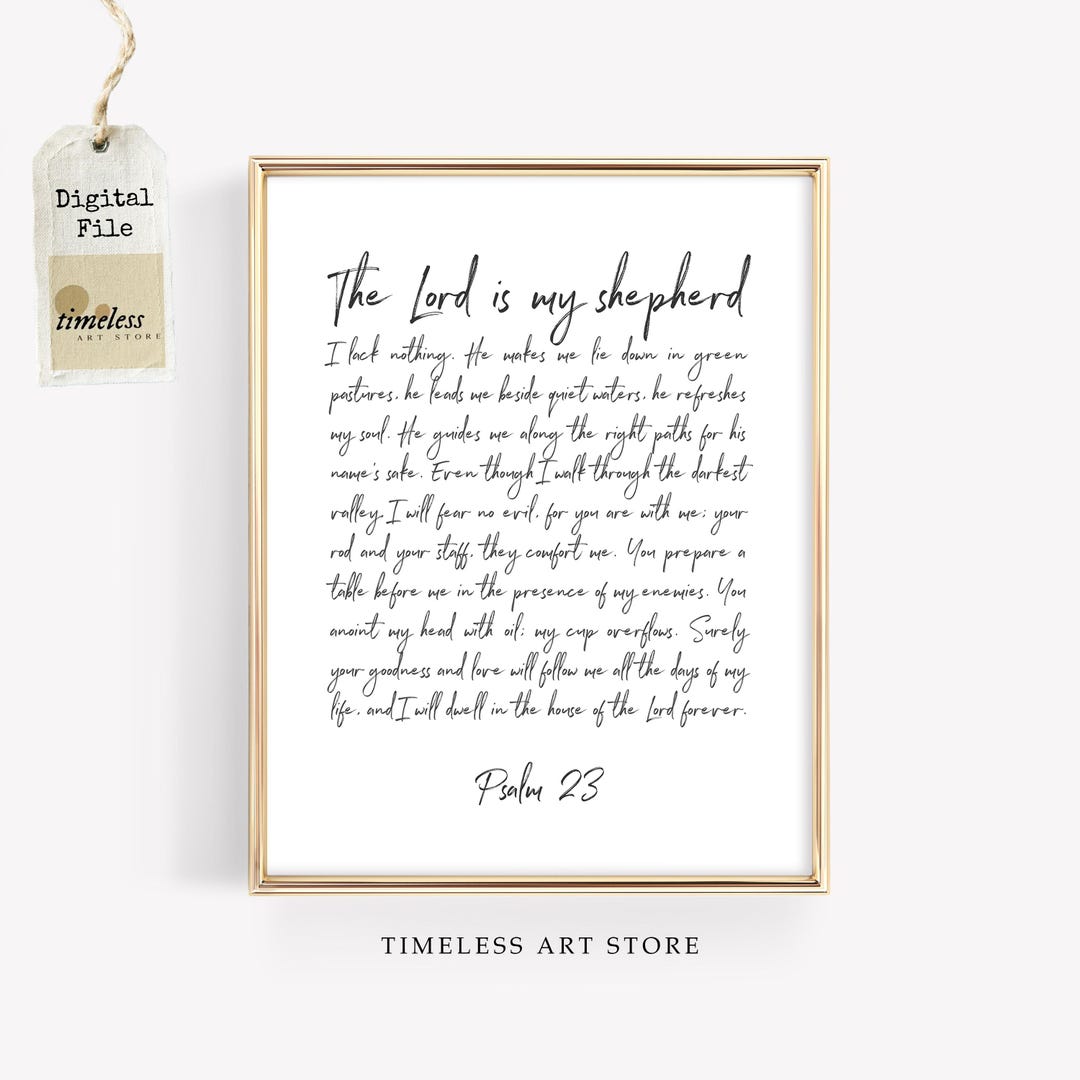 Digital
File
timeless
ART STORE
The Lord is my shepherd
I lack nothing. He makes me lie down in green
pastures, he leads me beside quiet waters, he refreshes
my soul. He guides me along the right paths for his
name's sake. Even though I walk through the darkest
valley, I will fear no evil, for you are with me; your
rod and your staff, they comfort me. You prepare a
table before me in the presence of my enemies. You
anoint my head with oil; my cup overflows. Surely
your goodness and love will follow me all the days of my
life, and I will dwell in the house of the Lord forever.
Psalm 23
TIMELESS ART STORE